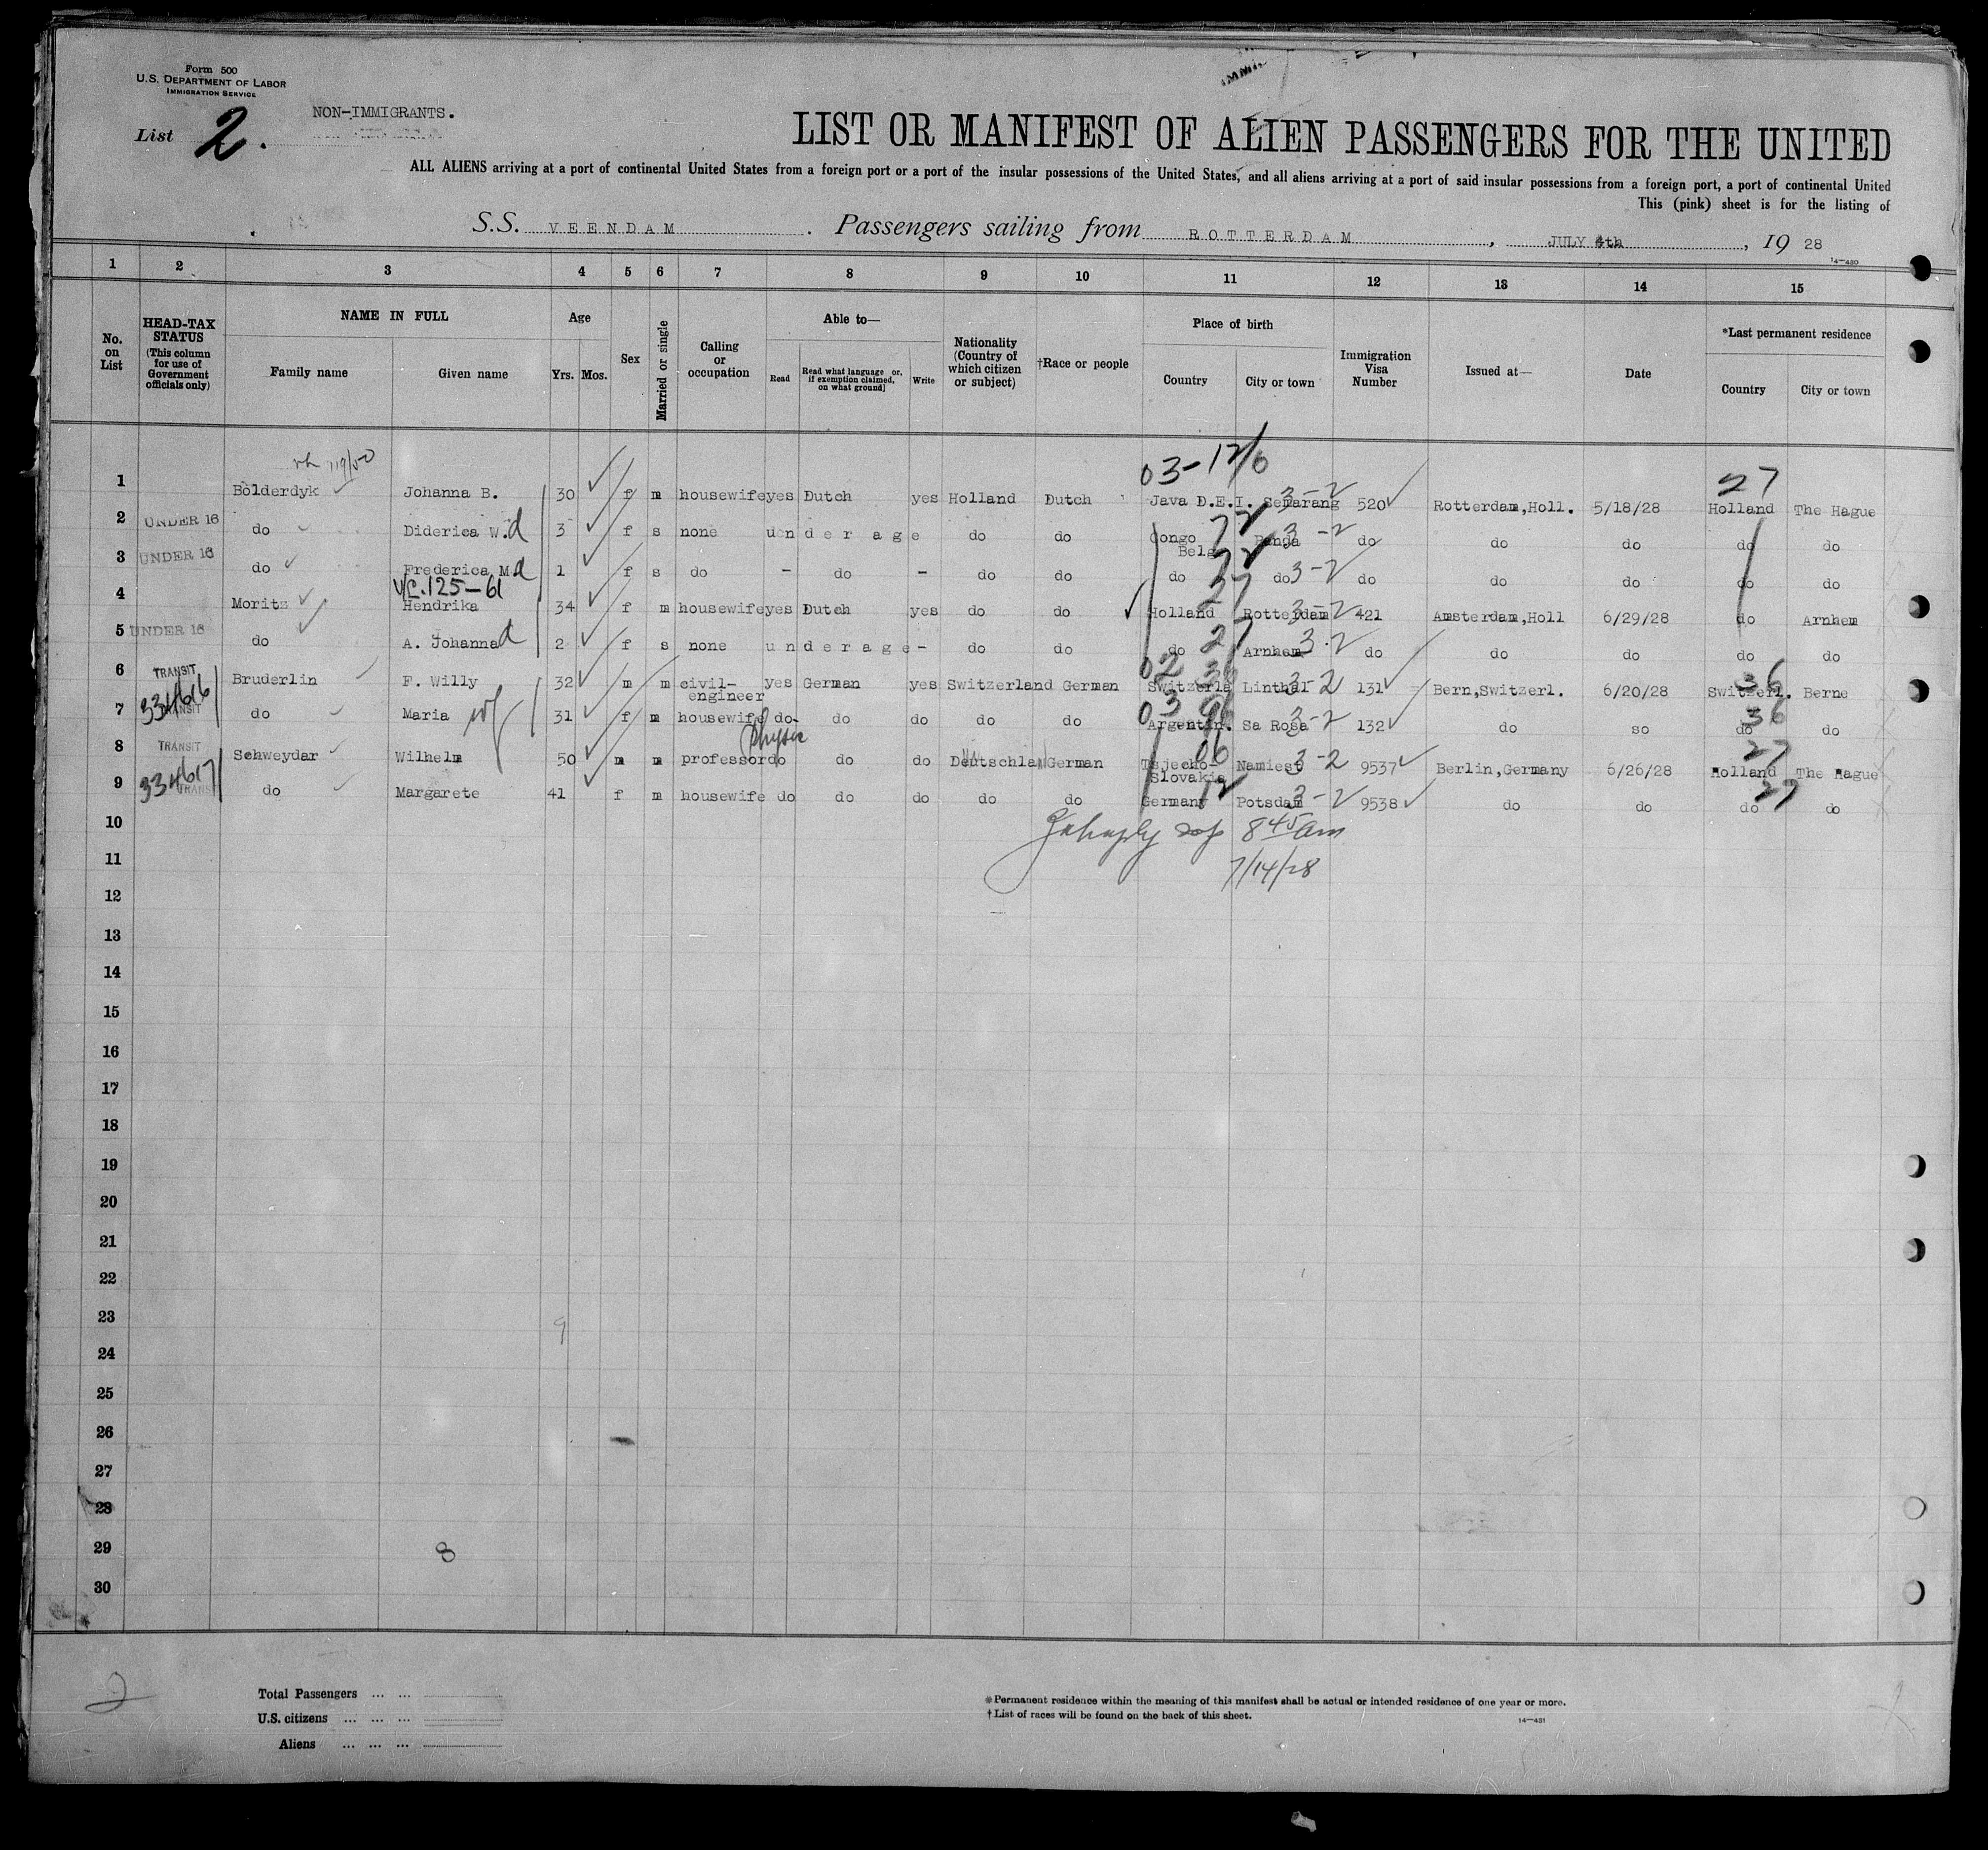 Form 500
U.S. DEPARTMENT OF LABOR
IMMIGRATION SERVICE
List 2.
NON-IMMIGRANTS.
LIST OR MANIFEST OF ALIEN PASSENGERS FOR THE UNITED
ALL ALIENS arriving at a port of continental United States from a foreign port or a port of the insular possessions of the United States, and all aliens arriving at a port of said insular possessions from a foreign port, a port of continental United
This (pink) sheet is for the listing of
S.S. VEENDAM. Passengers sailing from ROTTERDAM, JULY 4th, 19 28
14-480
1 2 3 4 5 6 7 8 9 10 11 12 13 14 15
No. on List
HEAD-TAX STATUS (This column for use of Government officials only)
NAME IN FULL
Family name
Given name
Age
Yrs. Mos.
Sex
Married or single
Calling or occupation
Able to—
Read
Read what language or, if exemption claimed, on what ground]
Write
Nationality (Country of which citizen or subject)
†Race or people
Place of birth
Country
City or town
Immigration Visa Number
Issued at—
Date
*Last permanent residence
Country
City or town
03-12/6
27
1 Bolderdyk Johanna B. 30 f m housewife yes Dutch yes Holland Dutch Java D.E.I. Semarang 3-2 520 Rotterdam,Holl. 5/18/28 Holland The Hague
2 UNDER 16 do Diderica W. d 3 f s none under age do do Congo Belg 72 Banga 3-2 do do do do do
3 UNDER 16 do Frederica M. d 1 f s do - do - do do do 72 do 3-2 do do do do do
V/C.125-61
4 Moritz Hendrika 34 f m housewife yes Dutch yes do do Holland 27 Rotterdam 3-2 421 Amsterdam,Holl 6/29/28 do Arnhem
5 UNDER 16 do A. Johanna d 2 f s none underage- do do do 27 Arnhem 3-2 do do do do do
6 TRANSIT Bruderlin F. Willy 32 m m civil-engineer yes German yes Switzerland German Switzerla Linthal 3-2 131 Bern,Switzerl. 6/20/28 Switzerl. 36 Berne
334616
7 TRANSIT do Maria 31 f m housewife do do do do do Argentin. Sa Rosa 3-2 132 do so do 36 do
physic
8 TRANSIT Schweydar Wilhelm 50 m m professor do do do Deutschla German Tsjecho-Slovakia 06 Namiest 3-2 9537 Berlin,Germany 6/26/28 Holland 27 The Hague
334617
9 TRANS do Margarete 41 f m housewife do do do do do Germany 12 Potsdam 3-2 9538 do do do 27 do
10
8 45 am
11
7/14/28
12
13
14
15
16
17
18
19
20
21
22
23
9
24
25
26
27
28
29
8
30
2
Total Passengers
U.S. citizens
Aliens
*Permanent residence within the meaning of this manifest shall be actual or intended residence of one year or more.
†List of races will be found on the back of this sheet.
14-481